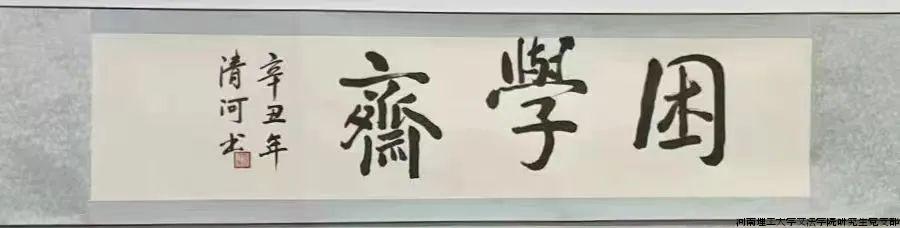 困學齋
辛丑年
清河书
河南理工大学文法学院研究生党支部